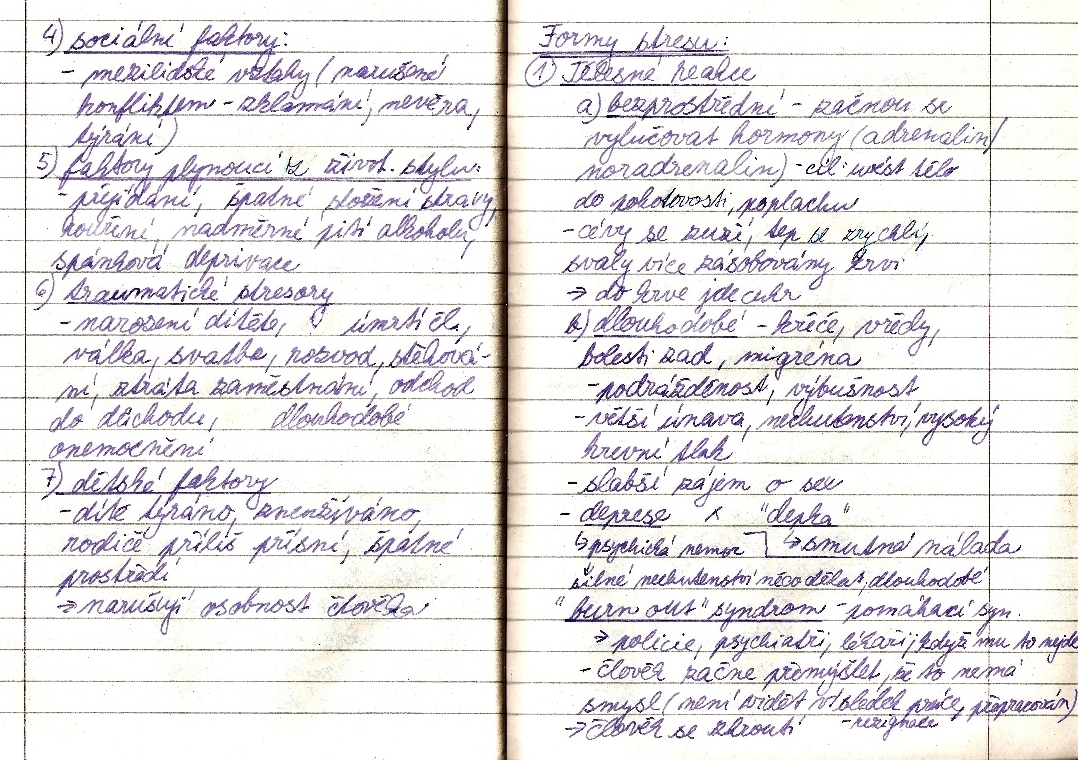 4) sociální faktory:
- mezilidské vztahy (narušené
konfliktem - zklamání, nevěra,
týrání)
5) faktory plynoucí z život. stylu:
- přejídání, špatné složení stravy,
kouření, nadměrné pití alkoholu,
spánková deprivace
6) traumatické stresory
- narození dítěte, úmrtí čl.,
válka, svatba, rozvod, stěhová-
ní, ztráta zaměstnání, odchod
do důchodu, dlouhodobé
onemocnění
7) dětské faktory
- dítě týráno, zneužíváno,
rodiče příliš přísní, špatné
prostředí
→ narušují osobnost člověka
Formy stresu:
1) Tělesné reakce
a) bezprostřední - začnou se
vylučovat hormony (adrenalin/
noradrenalin) - cíl: uvést tělo
do pohotovosti, poplachu
- cévy se zúží, tep se zrychlí,
svaly více zásobovány krví
→ do krve jde cukr
b) dlouhodobé - křeče, vředy,
bolesti zad, migréna
- podrážděnost, výbušnost
- větší únava, nechutenství, vysoký
krevní tlak
- slabší zájem o sex
- deprese × "depka"
↳ psychická nemoc ↳ smutná nálada
silné nechutenství něco dělat, dlouhodobé
"burn out" syndrom - pomáhací syn.
→ policie, psychiatři, lékaři, když mu to nejde
- člověk začne přemýšlet, že to nemá
smysl (není vidět výsledek práce, přepracován)
→ člověk se zhroutí - rezignace